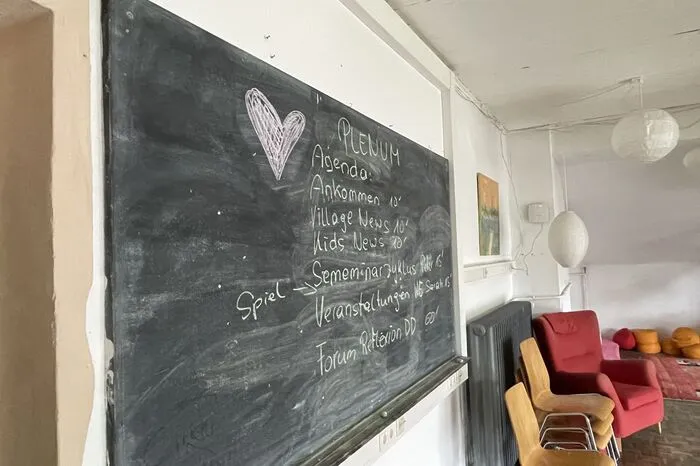 PLENUM
Agenda:
Ankommen 10'
Village News 10'
Kids News 10'
Spiel → Sememinarzyklus 15'
Veranstaltungen Sarah 15'
Forum Reflexion DD 60'